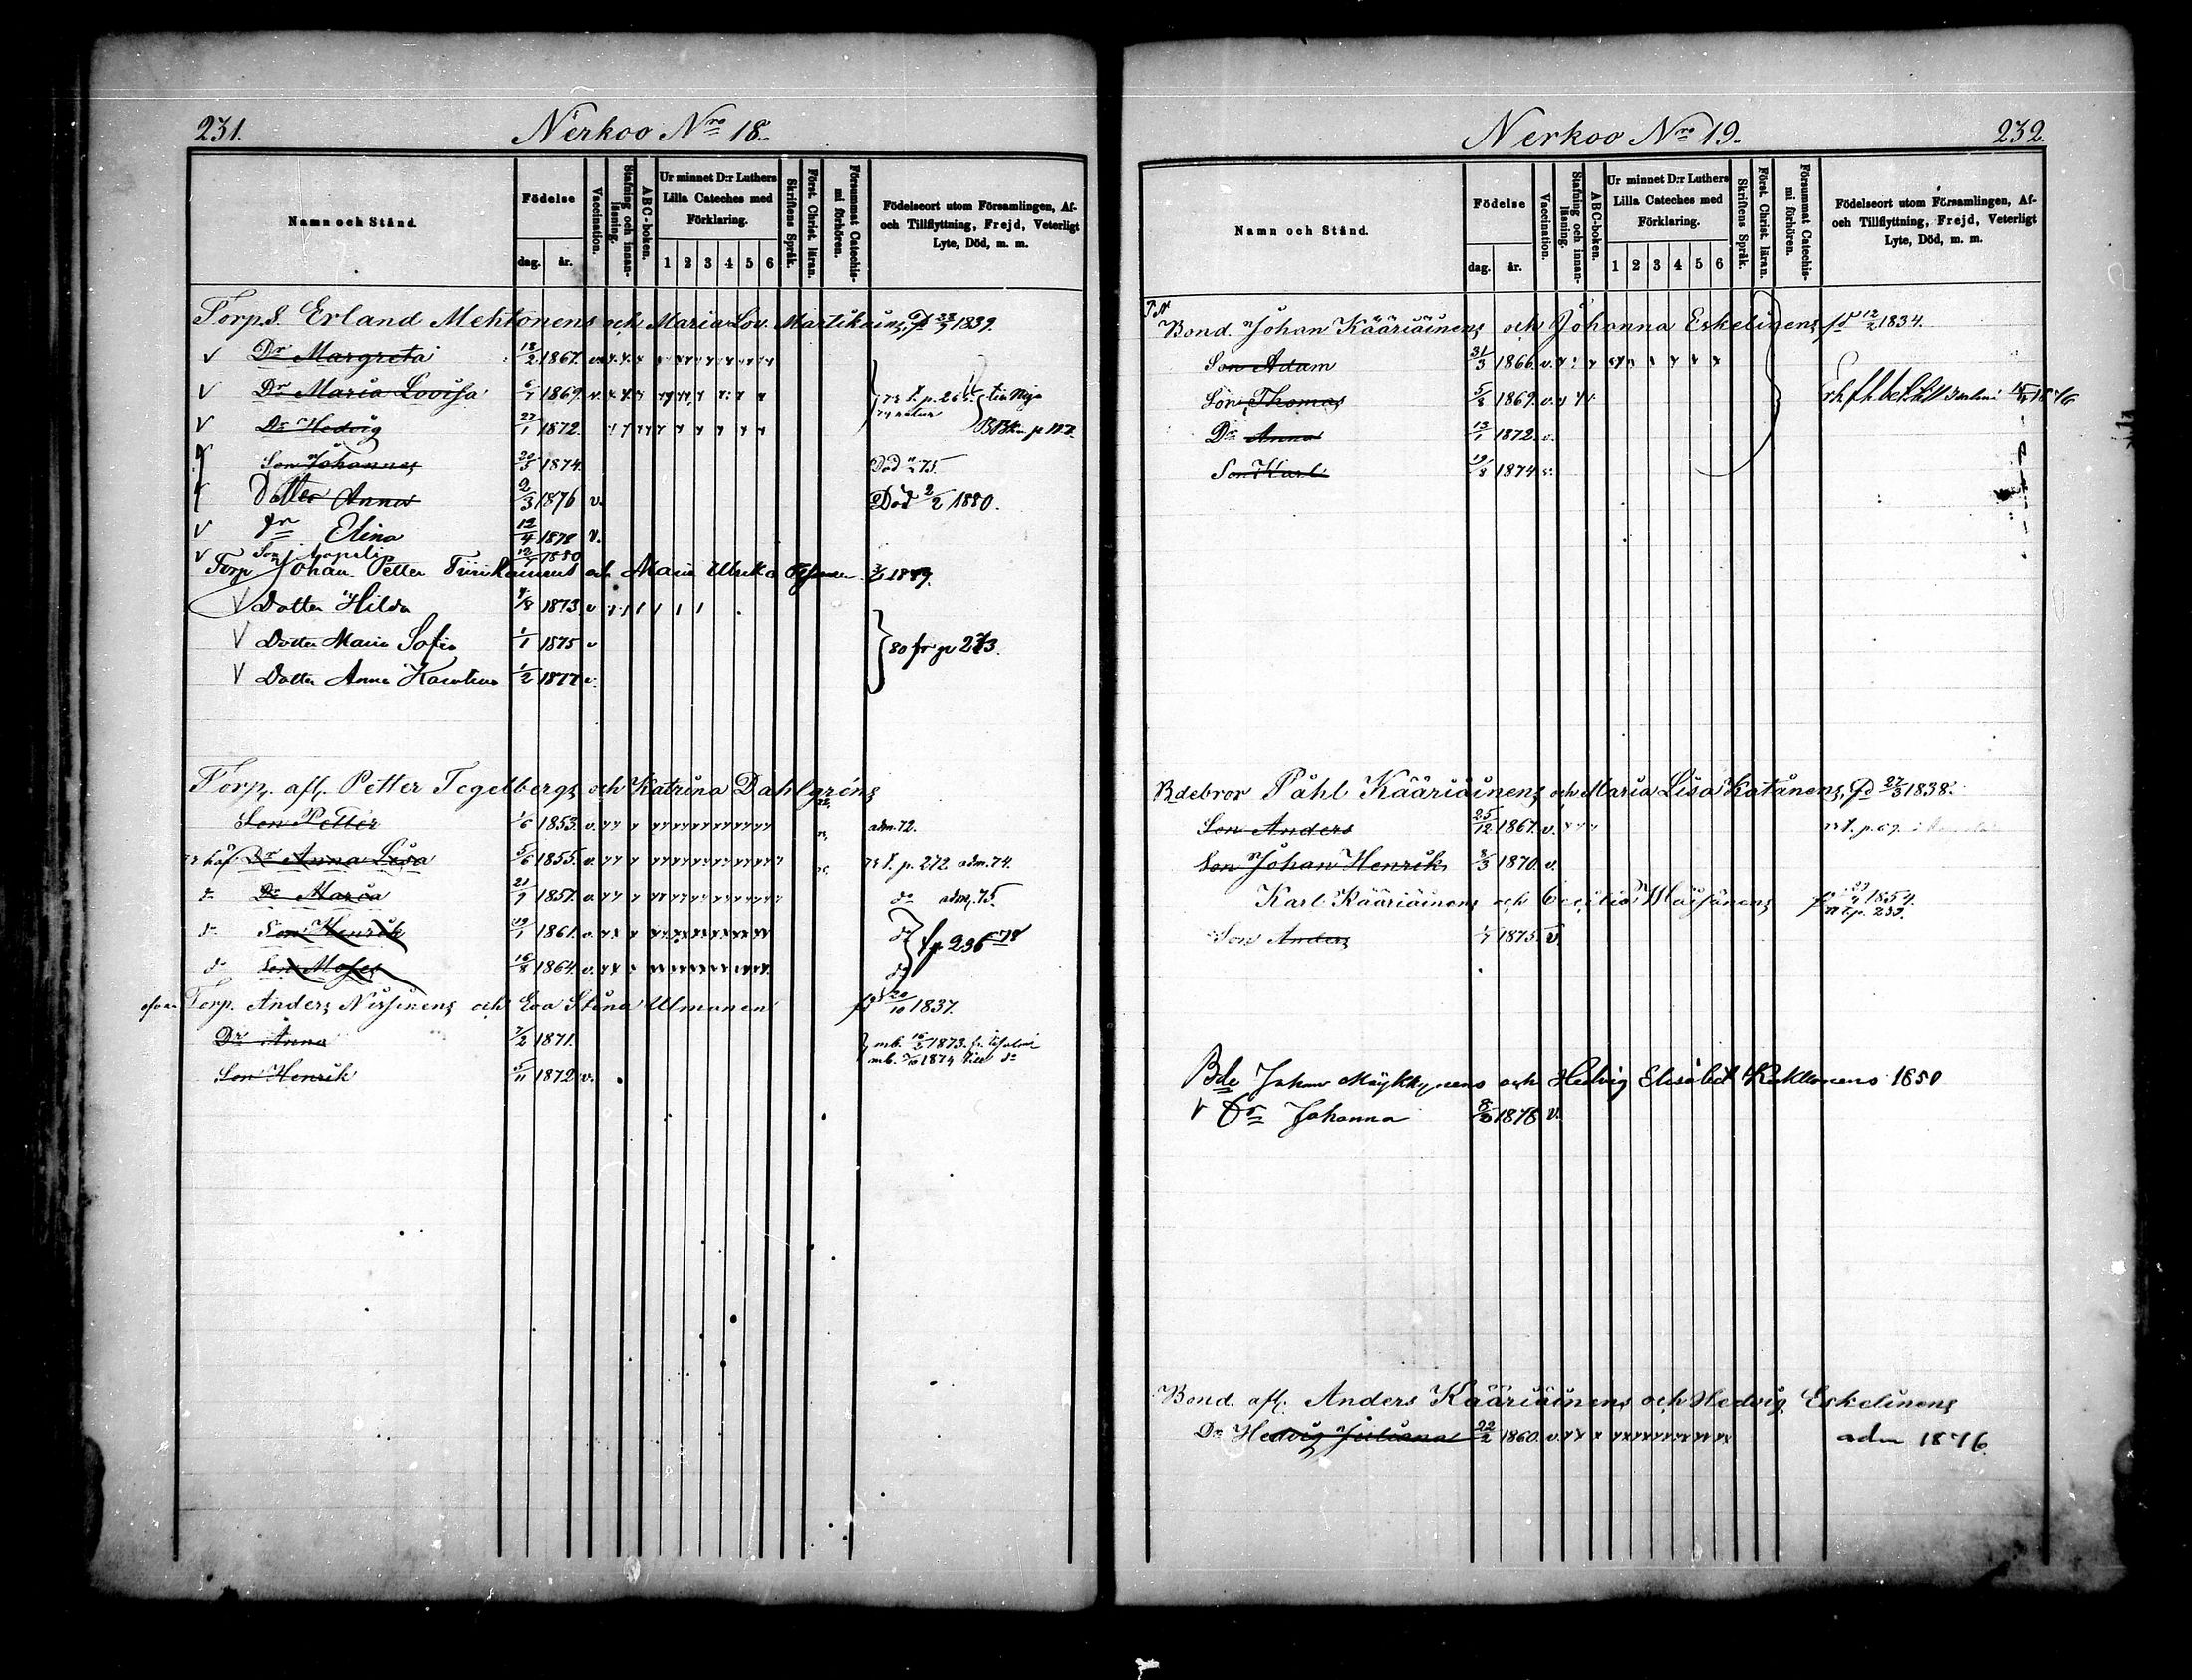 231.
Nerkoo Nro 18.
Namn och Stånd.
Födelse
dag.
år.
Vaccination.
Stafning och innan-läsning.
ABC-boken.
Ur minnet D:r Luthers Lilla Cateches med Förklaring.
1 2 3 4 5 6
Skriftens Språk.
Först. Christ. läran.
Försummat Catechis-mi förhören.
Födelseort utom Församlingen, Af- och Tillflyttning, Frejd, Veterligt Lyte, Död, m. m.
Torp.S. Erland Mehtonens och Maria Lov. Martikains, fd 1839.
v Dr Margreta 18/2 1867. v
v Dr Maria Lovisa 6/7 1869. v.
v Dr Hedvig 27/1 1872.
Son Johannes 20/5 1874. Död 75.
Dotter Anna 2/3 1876 v. Död 2/2 1880.
v Dr Elina 12/4 1878 v.
v Son 1880
Torp Johan Petter Tiirikainens och Maria Ulrika
v Dotter Hilda 4/8 1873 v
v Dotter Maria Sofia 1/1 1875 v 80 fr p 273.
v Dotter Anna Karolina 1/2 1877 v.
Torp. afl. Petter Tegelbergs och Katrina Dahlgréns
Son Petter 1/6 1853. v. adm. 72.
Dr Anna Lisa 5/6 1855. v. 73 t. p. 272 adm. 74.
do Dr Maria 21/9 1857. v. do adm. 75.
do Son Henrik 19/1 1861. v. do fp 236 78
do Son Moses 16/8 1864. v. do
Torp. Anders Nissinens och Eva Stina Ulmanen fd 20/10 1837.
Dr Anna 7/2 1871. mb. 1873. fr.
Son Henrik 5/11 1872 v. mb. 1874 till do
Nerkoo Nro 19.
232.
Namn och Stånd.
Födelse
dag.
år.
Vaccination.
Stafning och innan-läsning.
ABC-boken.
Ur minnet D:r Luthers Lilla Cateches med Förklaring.
1 2 3 4 5 6
Skriftens Språk.
Först. Christ. läran.
Försummat Catechis-mi förhören.
Födelseort utom Församlingen, Af- och Tillflyttning, Frejd, Veterligt Lyte, Död, m. m.
Bond. Johan Kääriäinens och Johanna Eskelinens fd 12/2 1834.
Son Adam 31/3 1866. v.
Son Thomas 5/8 1869. v.
Dr Anna 13/1 1872. v.
Son Karl 19/8 1874 v.
Bdebror Påhl Kääriäinens och Maria Lisa Katainens, fd 27/3 1838.
Son Anders 25/12 1867. v.
Son Johan Henrik 8/3 1870. v.
Karl Kääriäinens och Cecilia Väisänens 1854.
Son Anders 1/7 1875. v.
Bde Johan Mykkynens och Hedvig Elisabet 1850
v Dr Johanna 1878 v.
Bond. afl. Anders Kääriäinens och Hedvig Eskelinens
Dr Hedvig Juliana 22/2 1860. v. adm 1876.